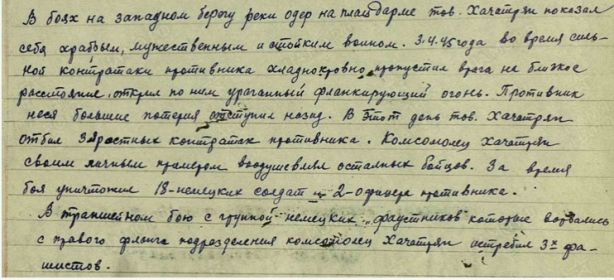 В боях на западном берегу реки одер на плацдарме тов. Хачатрян показал
себя храбрым, мужественным и стойким воином. 3.4.45 года во время силь-
ной контратаки противника хладнокровно пропустил врага на близкое
расстояние, открыл по ним ураганный фланкирующий огонь. Противник
неся большие потерия отступил назад. В этот день тов. Хачатрян
отбил 3 яростных контратак противника. Комсомолец Хачатрян
своим личным примером воодушевлял остальных бойцов. За время
боя уничтожил 18-немецких солдат и 2-офицера противника.
В траншейном бою с группой немецких фаустников которые ворвались
с правого фланга подразделения комсомолец Хачатрян истребил 3х фа-
шистов.